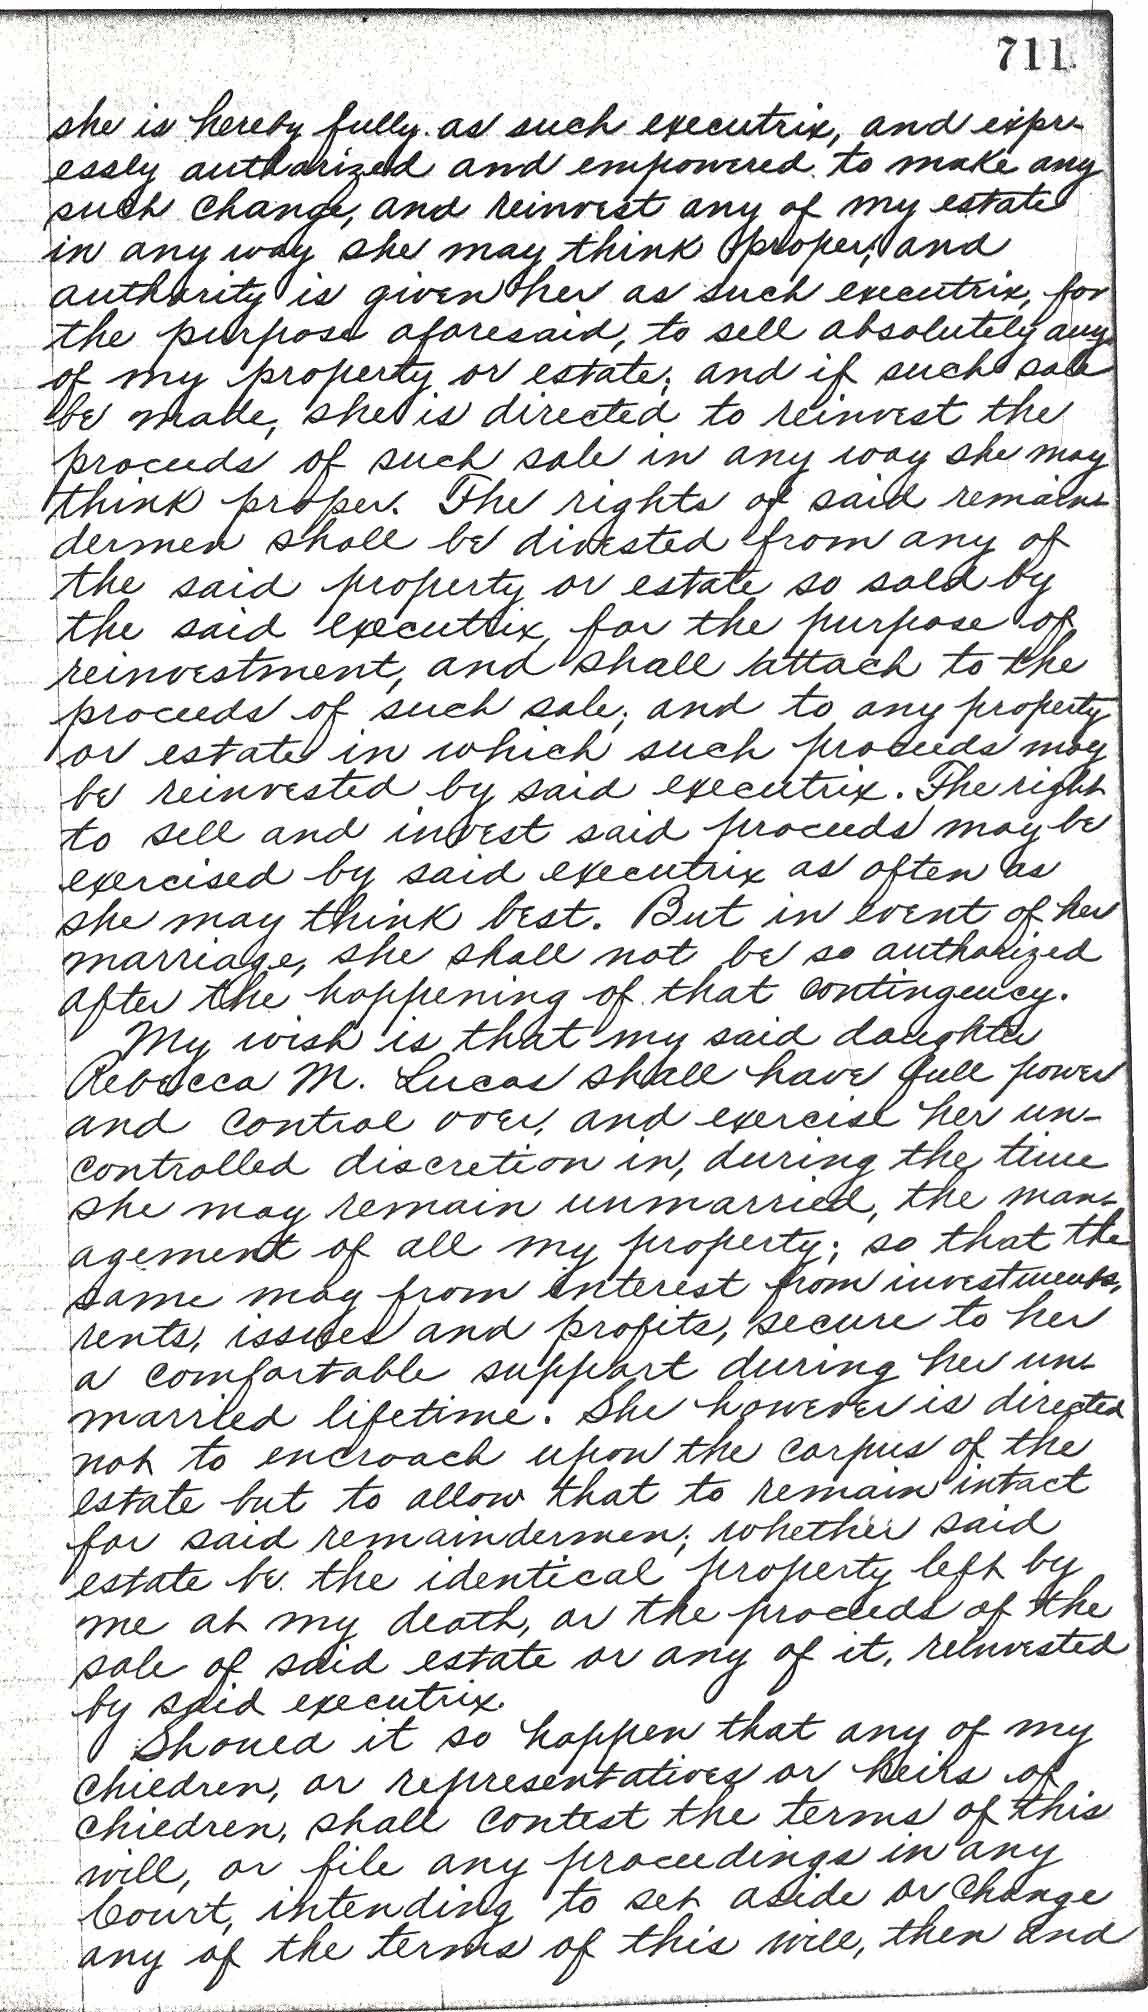 711.
she is hereby fully as such executrix, and expr-
essly authorized and empowered to make any
such change, and reinvest any of my estate
in any way she may think proper, and
authority is given her as such executrix, for
the purpose aforesaid, to sell absolutely any
of my property or estate; and if such sale
be made, she is directed to reinvest the
proceeds of such sale in any way she may
think proper. The rights of said remain-
dermen shall be divested from any of
the said property or estate so sold by
the said executrix, for the purpose of
reinvestment, and shall attach to the
proceeds of such sale; and to any property
or estate in which such proceeds may
be reinvested by said executrix. The right
to sell and invest said proceeds may be
exercised by said executrix as often as
she may think best. But in event of her
marriage, she shall not be so authorized
after the happening of that contingency.
My wish is that my said daughter
Rebecca M. Lucas shall have full power
and control over, and exercise her un-
controlled discretion in, during the time
she may remain unmarried, the man-
agement of all my property; so that the
same may from interest from investments,
rents, issues and profits, secure to her
a comfortable support during her un-
married lifetime. She however is directed
not to encroach upon the corpus of the
estate but to allow that to remain intact
for said remaindermen; whether said
estate be the identical property left by
me at my death, or the proceeds of the
sale of said estate or any of it, reinvested
by said executrix.
Should it so happen that any of my
children, or representatives or heirs of
children, shall contest the terms of this
will, or file any proceedings in any
Court, intending to set aside or change
any of the terms of this will, then and